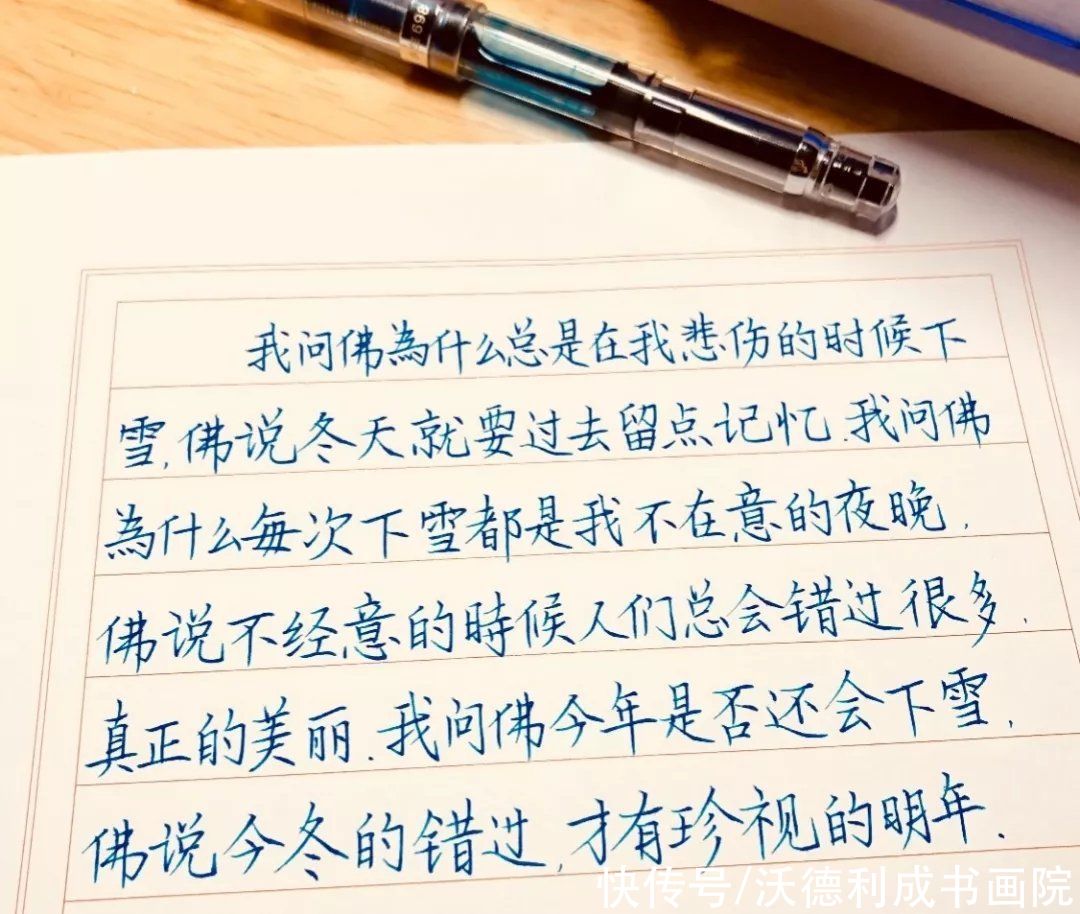 698
我问佛為什么总是在我悲伤的时候下
雪.佛说冬天就要过去留点记忆.我问佛
為什么每次下雪都是我不在意的夜晚.
佛说不经意的時候人们总会错过很多.
真正的美丽.我问佛今年是否还会下雪.
佛说今冬的错过.才有珍视的明年.
快传号/沃德利成书画院